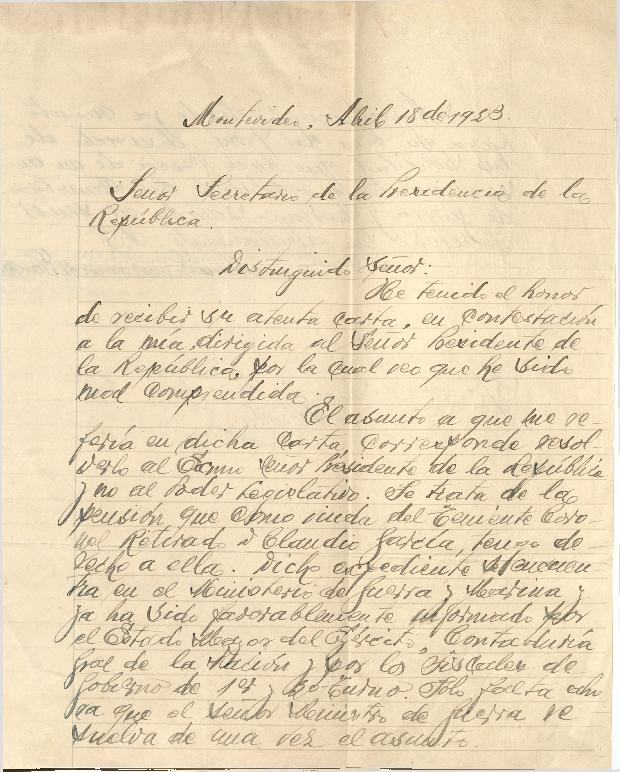 Montevideo, Abril 18 de 1923.
Señor Secretario de la Presidencia de la
República.
Distinguido Señor:
He tenido el honor
de recibir su atenta carta, en contestación
a la mía, dirigida al Señor Presidente de
la República, por la cual veo que he sido
mal comprendida.
El asunto a que me re-
fería en dicha carta, corresponde resol-
verlo al Exmo Señor Presidente de la República
y no al Poder Legislativo. Se trata de la
pensión que como viuda del Teniente Coro-
nel Retirado D Claudio García, tengo de-
recho a ella. Dicho expediente se encuen-
tra en el Ministerio de Guerra y Marina y
ya ha sido favorablemente informado por
el Estado Mayor del Ejército, Contaduría
Gral de la Nación y por los Fiscales de
Gobierno de 1er y 2o Turno. Solo falta aho-
ra que el señor Ministro de Guerra re
suelva de una vez el asunto.